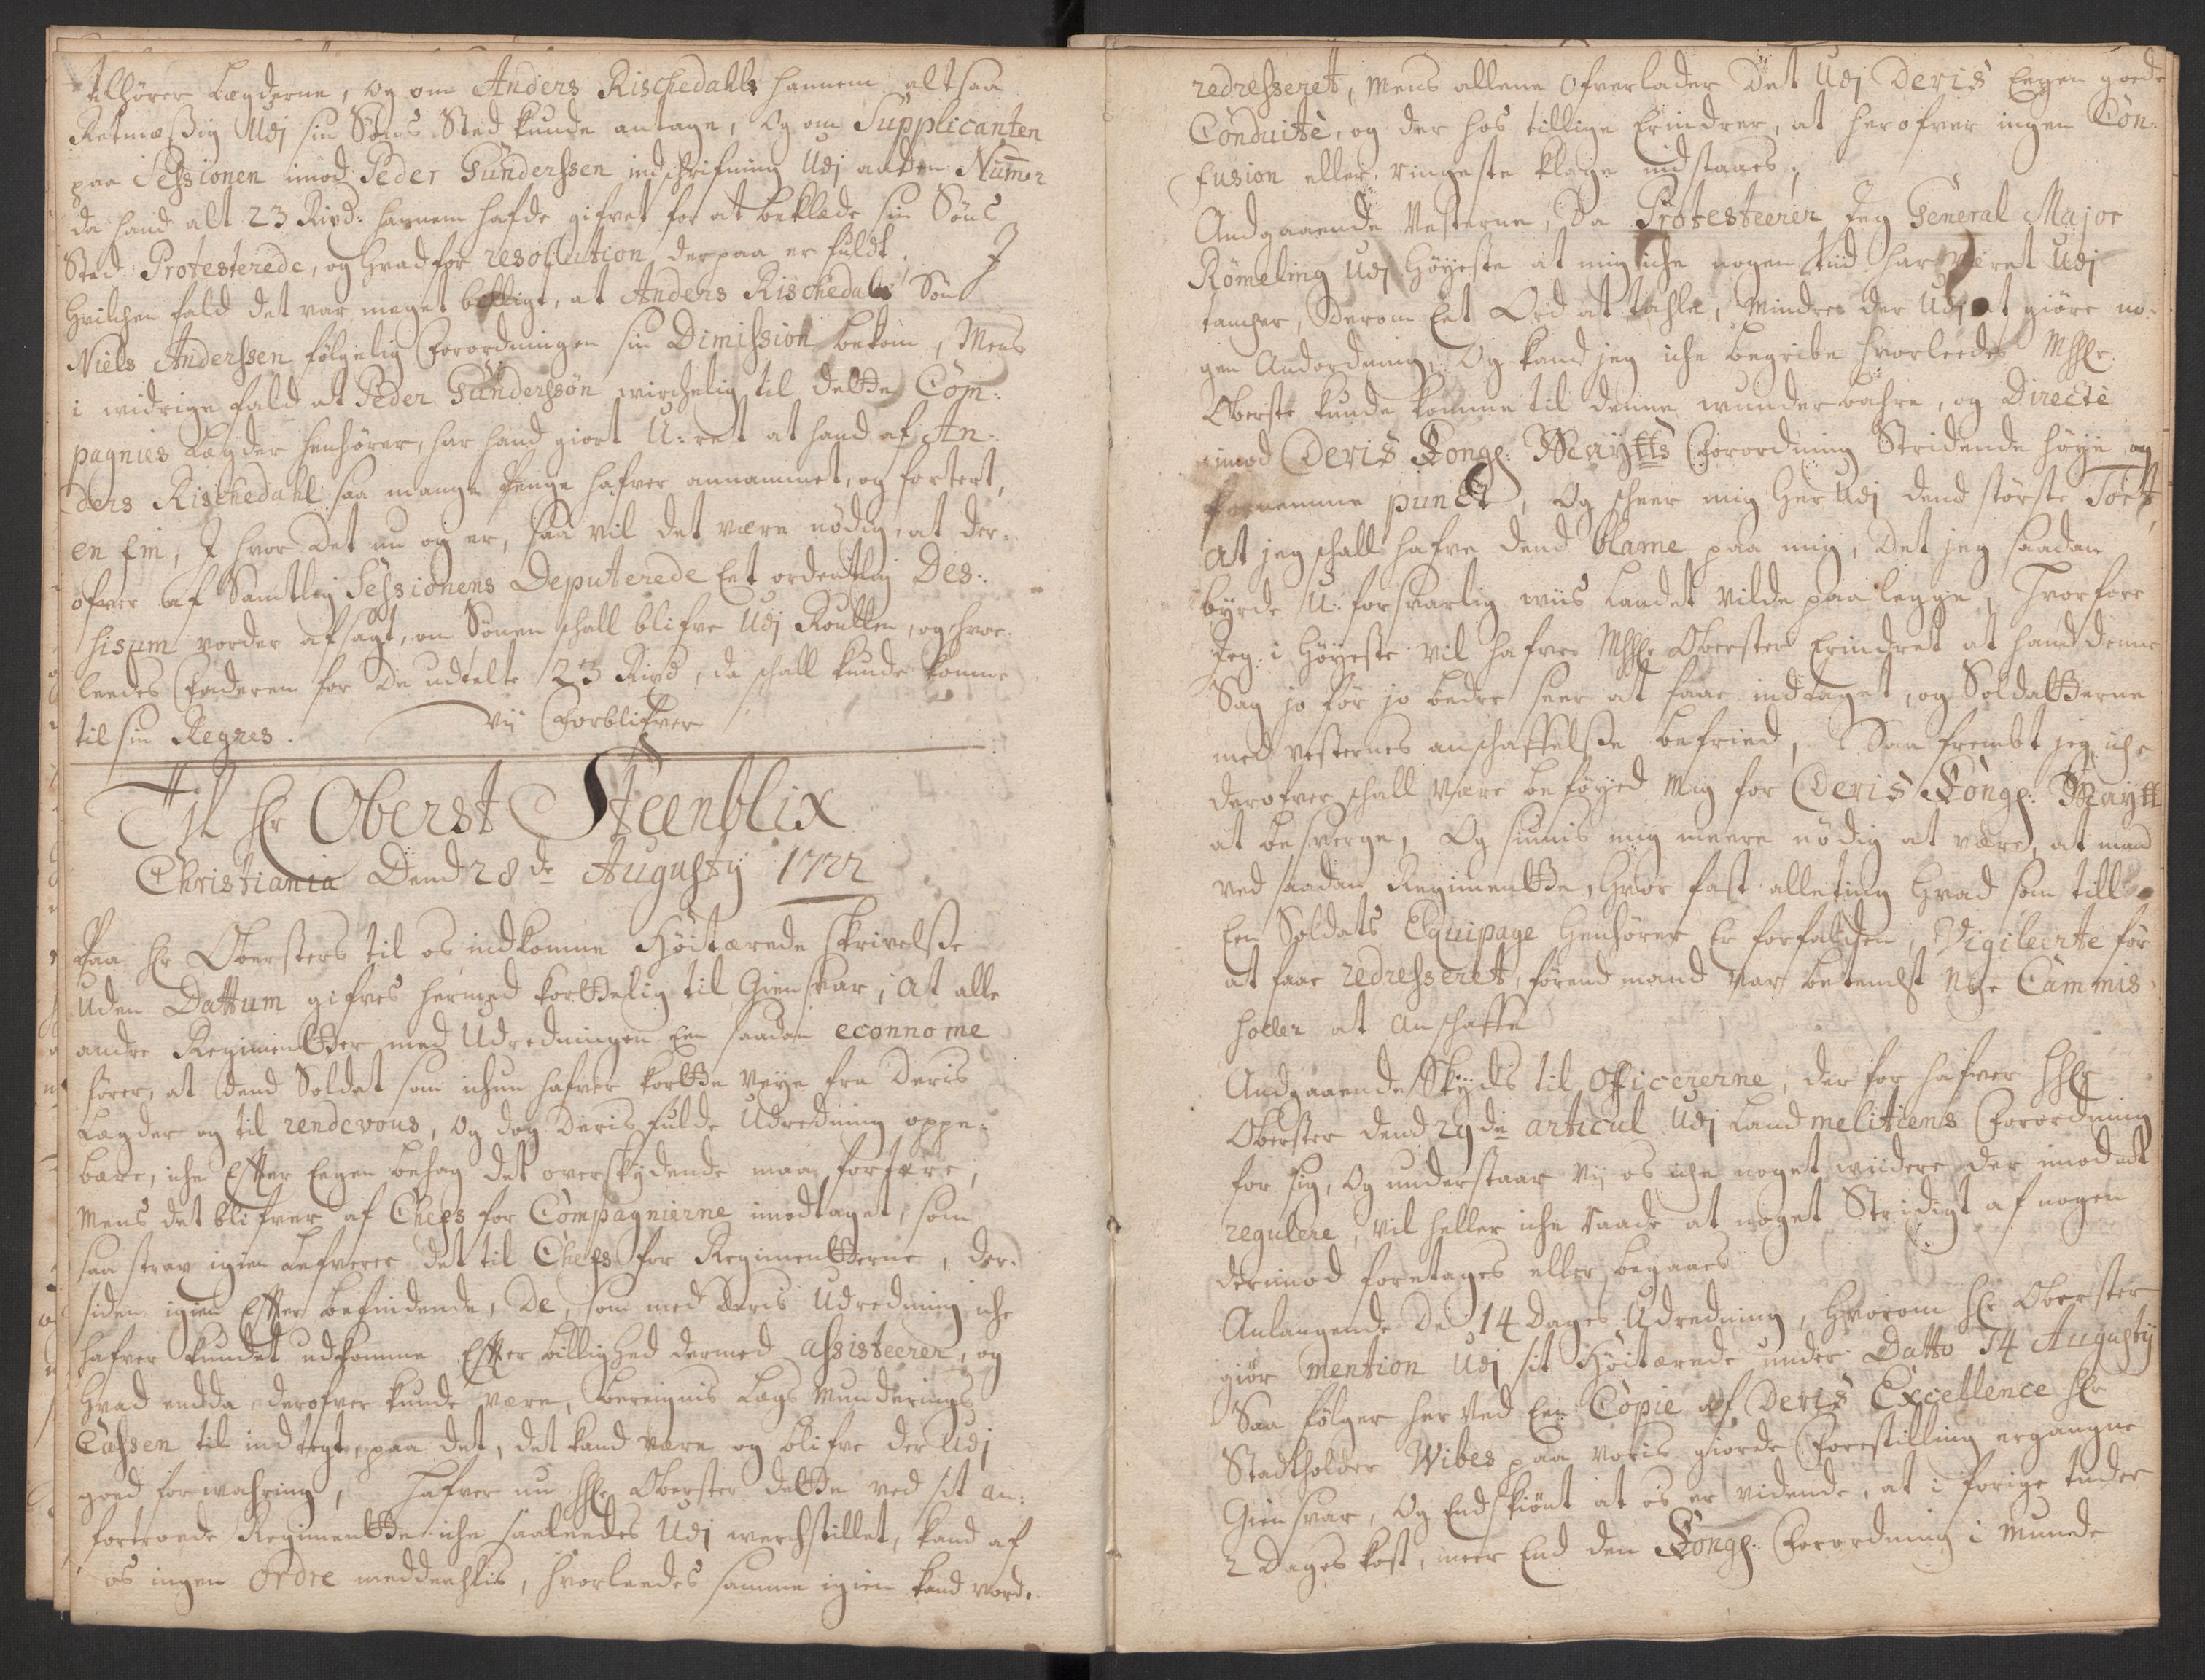 tilhörer Lægderne, og om Anders Rischedahls hannem altsaa
Retmæssig Udj sin Söns Sted kunde antage, og om Supplicanten
paa Sessionen imod Peder Gunderssen indschrifning Udj anden Num̅er
da hand alt 23 Rixd: hannem hafde gifvet for at beklæde sin Söns
Sted Protesterede, og hvad for resolution derpaa er fuldt. J
hvilchen fald det var meget billigt, at Anders Rischedals Sön
Niels Anderssen fölgelig Forordningen sin Dimission bekom, Mens
i widrige fald at Peder Gunderssön wirchelig til dette Com:
pagnies Lægder henhörer, har hand giort U:ret at hand af An:
ders Rischedahl saa mange Penge hafver annammet, og fortert,
en fin, J hvor det nu og er, saa vil det være nödig, at der:
ofver af Samtlig Sessionens Deputerede Eet ordentlig Des:
hisum vorder afsagt, om Sönen schall blifve Udj Roullen, og hvor:
leedes Faderen for de udtelte 23 Rixd, da schall kunde komme
til sin Regres. Vij Forblifver
Til Hr Oberst Steenblix
Christiania Dend 28de Augusty 1722
Paa Hr Obersters til os indkomne Höitærede skrivelsse
Uden Dattum gifves hermed korttelig til Giensvar, at alle
andre Regimentter med Udredningen Een saadan econnome
förer, at dend Soldat som ichun hafver kortte Veye fra Deris
Lægder og til rendevous, og dog Deris fulde Udredning oppe:
bære, iche Efter Eegen behag det overskydende maa fortære,
Mens det blifver af Chefs for Compagnierne imodtaget, som
saa strax igien Lefverer det til Chefs for Regimentterne, der:
siden igien Efter befindende, De, som med deris Udredning iche
hafver kundet udkomme Efter billighed dermed assisteerer, og
hvad endda derofver kunde være, beregnis Lægs Munderings
Cassen til indtegt, paa det, det kand være og blifve der Udj
goed forwahring, Hafver nu HHr Oberster dette ved sit an:
fortroede Regimentte iche saaleedes Udj werchstillet, kand af
os ingen Ordre meddeehlis, hvorleedes samme igien kand vord:
redresseret, Mens allene ofverlader det Udj Deris Eegen goede
Conduite, og der hos tillige Erindrer, at herofver ingen Con:
fusion eller ringeste klage indstaaes,
Andgaaende Vesterne, da Protesteerer Jeg General Major
Römeling Udj Höyeste at mig iche nogen tiid har været Udj
tancher, derom Eet Ord at tahle, Mindre der Udj at giöre no:
gen Andordning, Og kand jeg iche begribe hvorleedes MHHr
Oberste kunde komme til denne wunderbahre, og Directè
imod Deris Kongl: Mayttz Forordning Stridende höye og
fornemme punct, Og scheer mig her Udj dend störste Tort,
At jeg schall hafve dend blame paa mig, det jeg saadan
byrde U:forsvarlig viis Landet vilde paalegge, Hvorfore
Jeg i Höyeste vil hafve MHHr Oberster Erindret at hand denne
Sag jo för jo bedre seer at faae indtaget, og Soldatterne
med vesternes anschaffelsse befried, Saa frembt jeg iche
derofver schall være beföyed Mig for Deris Kongl: Maytt
at besverge, Og siunis mig meere nödig at være, at mand
ved saadan Regimentte, hvor fast alleting hvad som till
Een Soldats Equipage henhörer Er forfalden, Vigileerte för
at faae redresseret, förend mand var betenckt Nye Cammis:
holler at Anschaffe
Andgaaende Skyds til Officererne, der for hafver HHr
Oberster dend 29de articul Udj Landmelitiens Forordning
for sig, Og understaar Vij os iche noget wiidere der imod at
regulere, vil heller iche raade at noget Stridigt af nogen
derimod foretages eller begaaes
Anlangende De 14 Dages Udredning, hvorom Hr Oberster
giör mention Udj sit Höitærede under Datto 14 Augusty
Saa fölger her ved Een Copie af Deris Excellence Hr
Stadtholder Wibes paa voris giorde Forestilling ergangne
Giensvar, Og Endskiönt at os er vidende, at i forige tiider
2 Dages kost, meer End den Kongl: Forordning i Munde